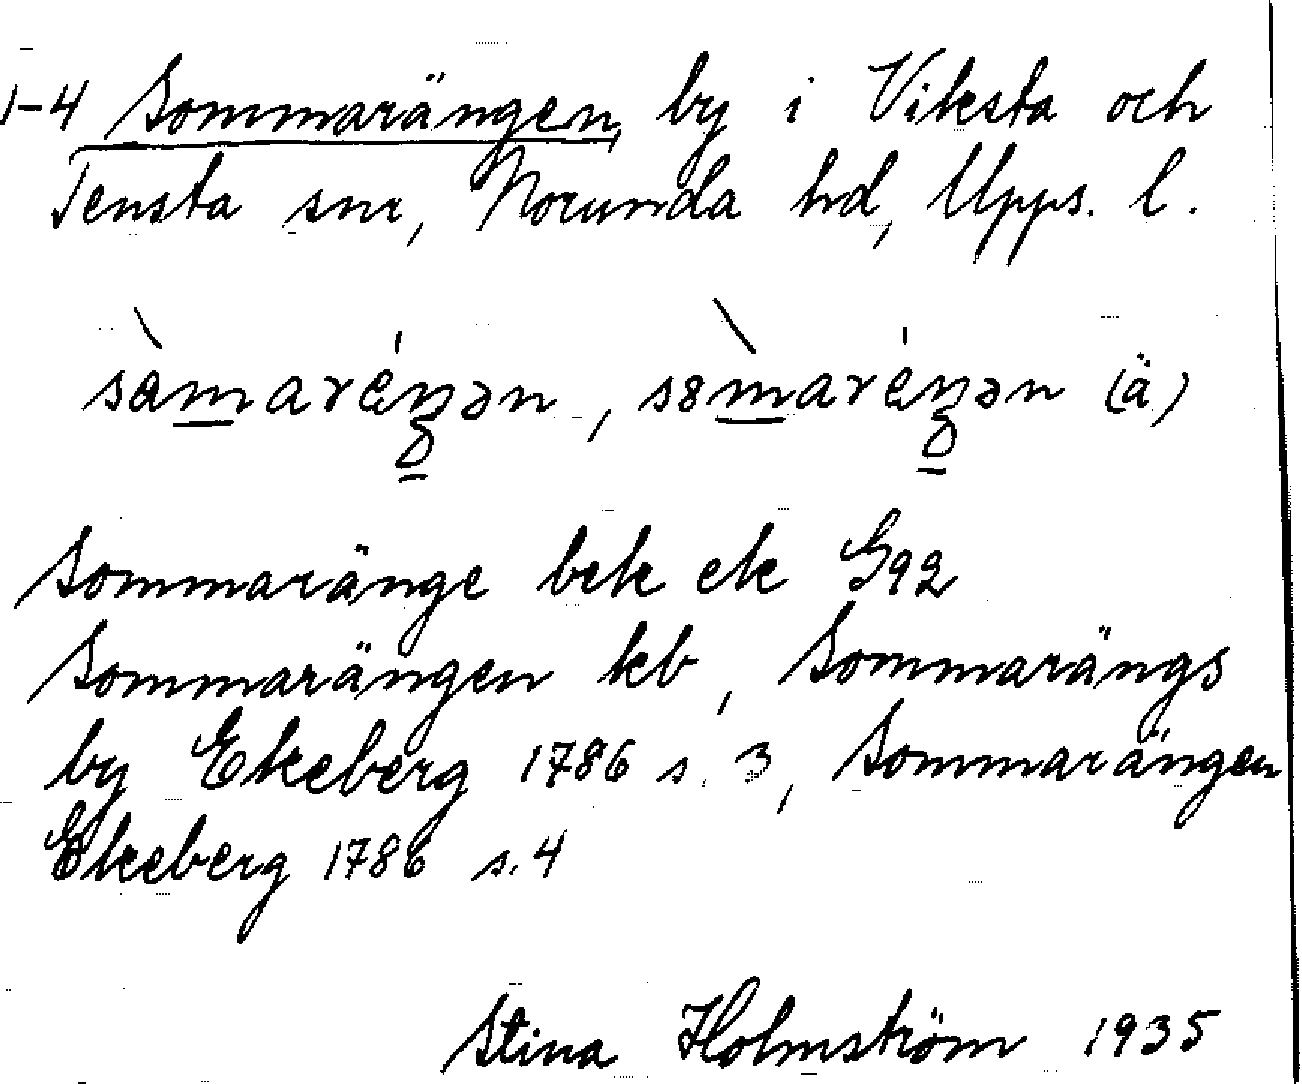 1-4 Sommarängen, by i Viksta och
Tensta snr, Norunda hd, Upps. l.
sàmaréŋən, sömaréŋən (ä)
Sommaränge bek ek G92
Sommarängen kb, Sommarängs
by Ekeberg 1786 s. 3, Sommarängen
Ekeberg 1786 s. 4
Stina Holmström 1935